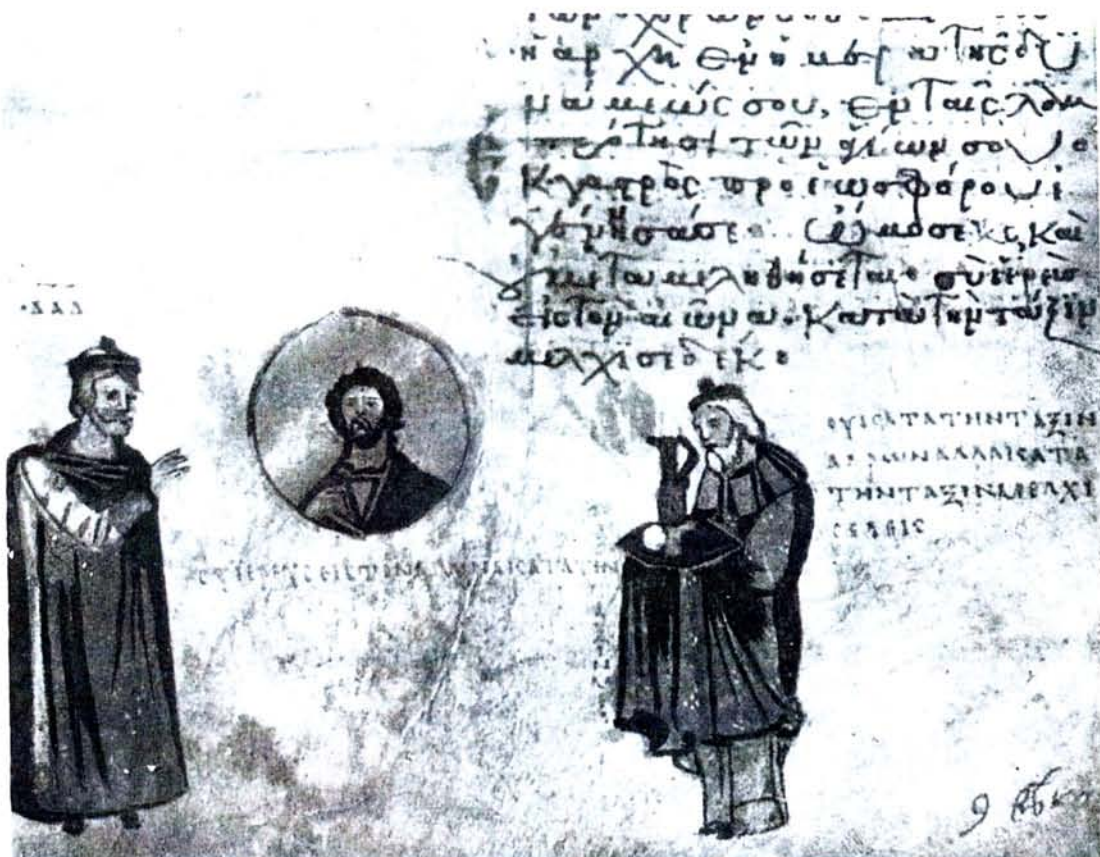 ἡ ἀρχὴ ἐν τῆς δυ
νάμεώς σου, ἐν ταῖς λαμ
πρότησι τῶν ἁγίων σου
Ἐκ γαστρὸς πρὸ ἑωσφόρου ἐ
γέννησά σε· ὤμοσε κς καὶ
οὐ μεταμεληθήσεται· σὺ ἱερεὺς
εἰς τὸν αἰῶνα· Κατὰ τὴν τάξιν
μελχισεδέκ·
ΔΑΔ
ΟΥ ΚΑΤΑ ΤΗΝ ΤΑΞΙΝ
ΑΑΡΩΝ ΑΛΛΑ ΚΑΤΑ
ΤΗΝ ΤΑΞΙΝ ΜΕΛΧΙ
ΚΑΤΑ ΤΗΝ